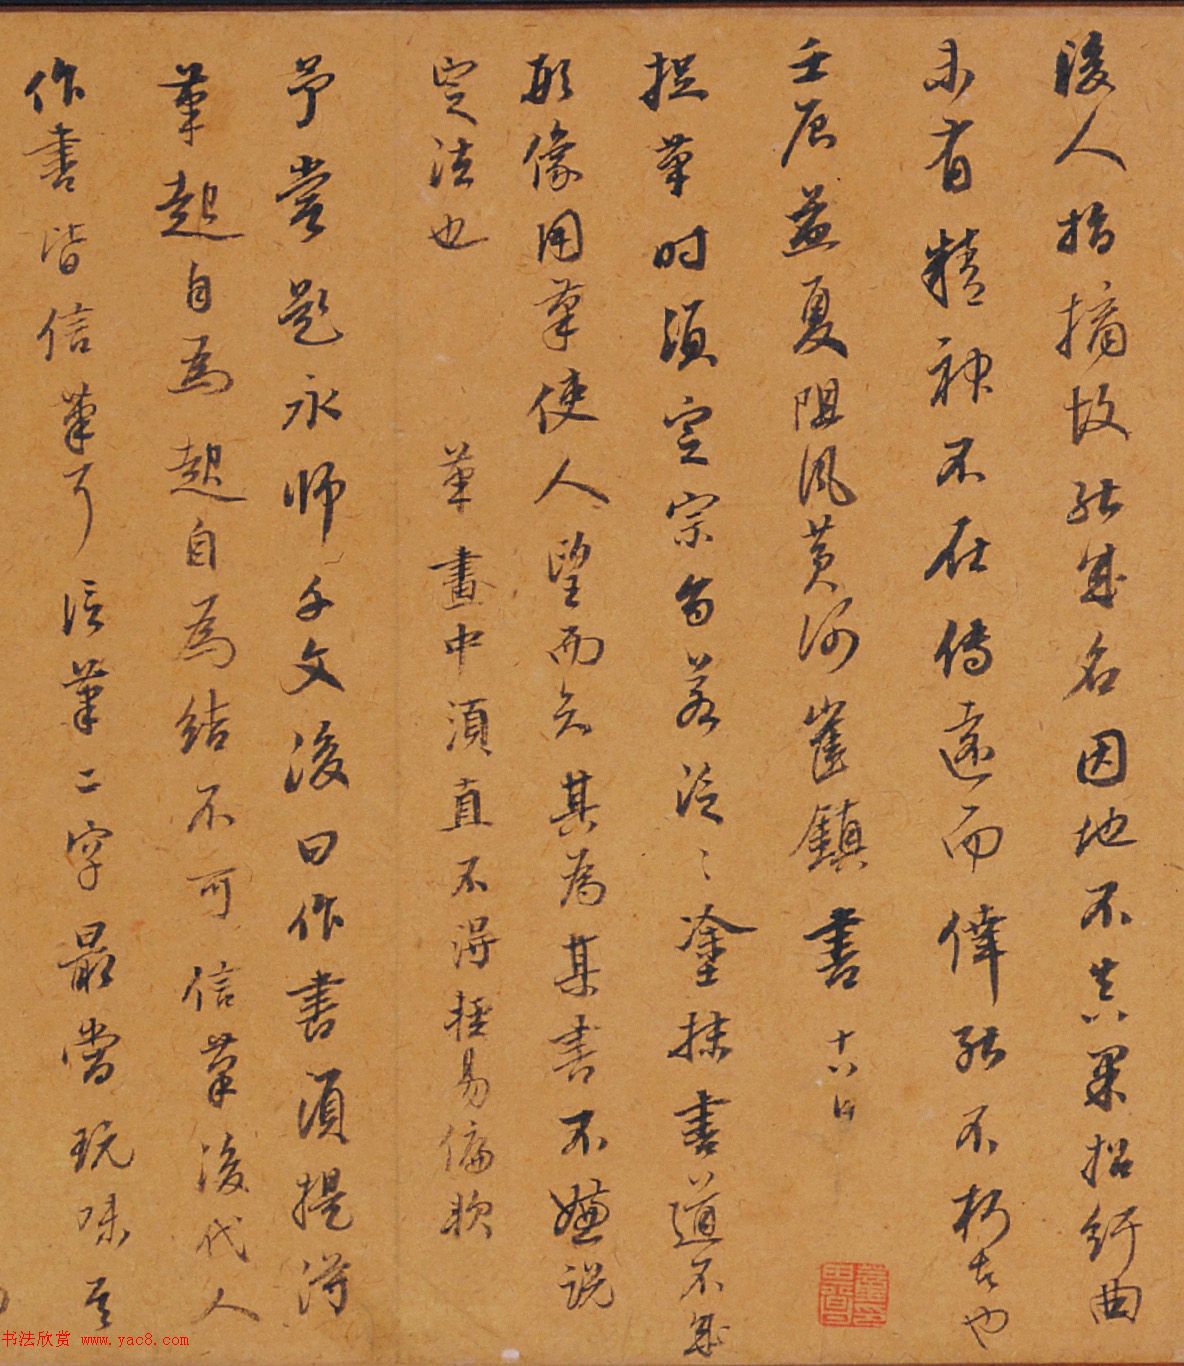 後人指摘故能成名因地不真果招紆曲
未有精神不在傳遠而偉能不朽者也
壬辰益夏阻風黃河崔鎮書 十八日
捉筆時須定宗旨若泛泛塗抹書道不成
形像用筆使人望而知其為某書不嫌說
定法也 筆畫中須直不得輕易偏軟
予嘗題永師千文後曰作書須提得
筆起自為起自為結不可信筆後代人
作書皆信筆耳信筆二字最當玩味吾
书法欣赏 www.yac8.com